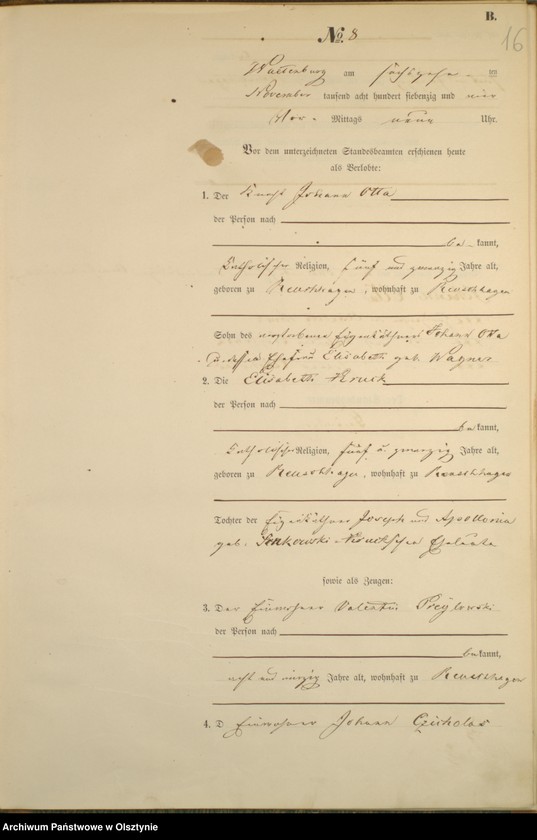 B.
16
No. 8
Wartenburg am sechszehn ten
November tausend acht hundert siebenzig und vier
Vor- Mittags neun Uhr.
Vor dem unterzeichneten Standesbeamten erschienen heute
als Verlobte:
1. Der Knecht Johann Otta
der Person nach
be- kannt,
Catholischer Religion, fünf und zwanzig Jahre alt,
geboren zu Reuschhagen, wohnhaft zu Reuschhagen
Sohn des verstorbenen Eigenkäthners Johann Otta
dessen Ehefrau Elisabeth geb. Wagner
2. Die Elisabeth Kruck
der Person nach
be kannt,
Catholischer Religion, fünf u. zwanzig Jahre alt,
geboren zu Reuschhagen, wohnhaft zu Reuschhagen
Tochter der Eigenkäthner Joseph und Apollonia
geb. Eheleute
sowie als Zeugen:
3. Der Einwohner Valentin
der Person nach
be kannt,
acht und Jahre alt, wohnhaft zu Reuschhagen
4. D Einwohner Johann Czicholas
Archiwum Państwowe w Olsztynie